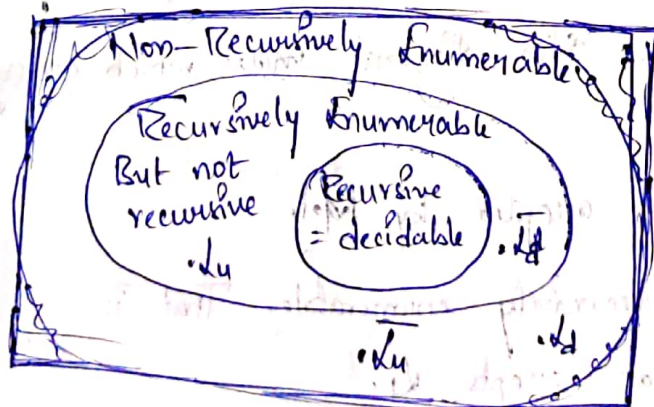 Non-Recursively Enumerable
Recursively Enumerable
But not
recursive
Recursive
= decidable
.Lu
.L̅d̅
.L̅u̅
.Ld